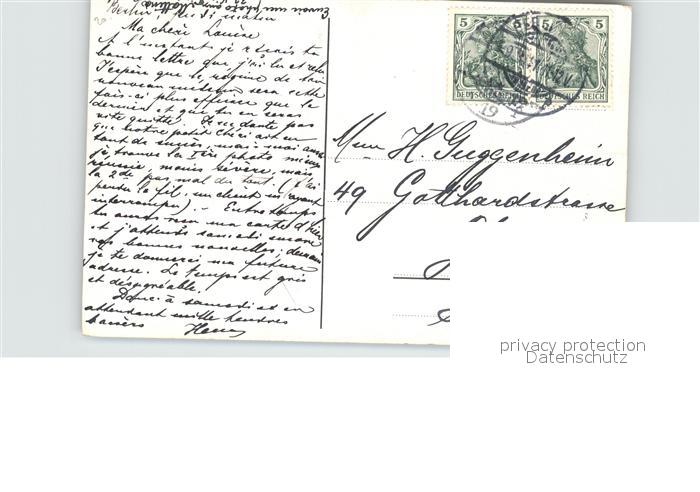 Berlin
Ma chère Louise
A l'instant je reçois ta
bonne lettre que j'ai lu et
J'espère que le régime de ton
nouveau médecin sera cette
fois-ci plus efficace que le
dernier et que tu en seras
vite quitte. Je
que notre petit Chéri ait eu
tant de succès, mais moi aussi
je trouve la 1ère photo mieux
réussie, moins sévère, mais
la 2de pas mal du tout. (J'ai
perdu le fil, un client m'ayant
interrompu). - Entretemps
tu auras reçu ma carte d'hier
et j'attends samedi encore
tes bonnes nouvelles; demain
je te donnerai ma future
adresse. Le temps est gris
et désagréable.
Donc à samedi et en
attendant mille tendres
baisers Henry
5 5
DEUTSCHES REICH DEUTSCHES REICH
Mme H. Guggenheim
49 Gotthardstrasse
privacy protection
Datenschutz